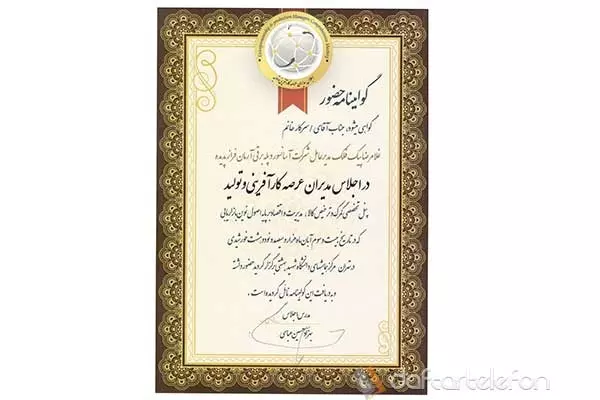 گواهینامه حضور
گواهی میشود، جناب آقای / سرکار خانم
غلامرضا پیک فلک مدیرعامل شرکت آسانسور و پله برقی آرمان فراز پدیده
در اجلاس مدیران عرصه کارآفرینی و تولید
پنل تخصصی گمرک و ترخیص کالا، مدیریت و اقتصاد بر پایه اصول نوین بازاریابی
که در تاریخ بیست و سوم آبان ماه هزار و سیصد و نود و هشت خورشیدی
در تهران مرکز همایشهای دانشگاه شهید بهشتی برگزار گردید حضور داشته
و به دریافت این گواهینامه نائل گردیده است.
مدرس اجلاس
daftartelefon